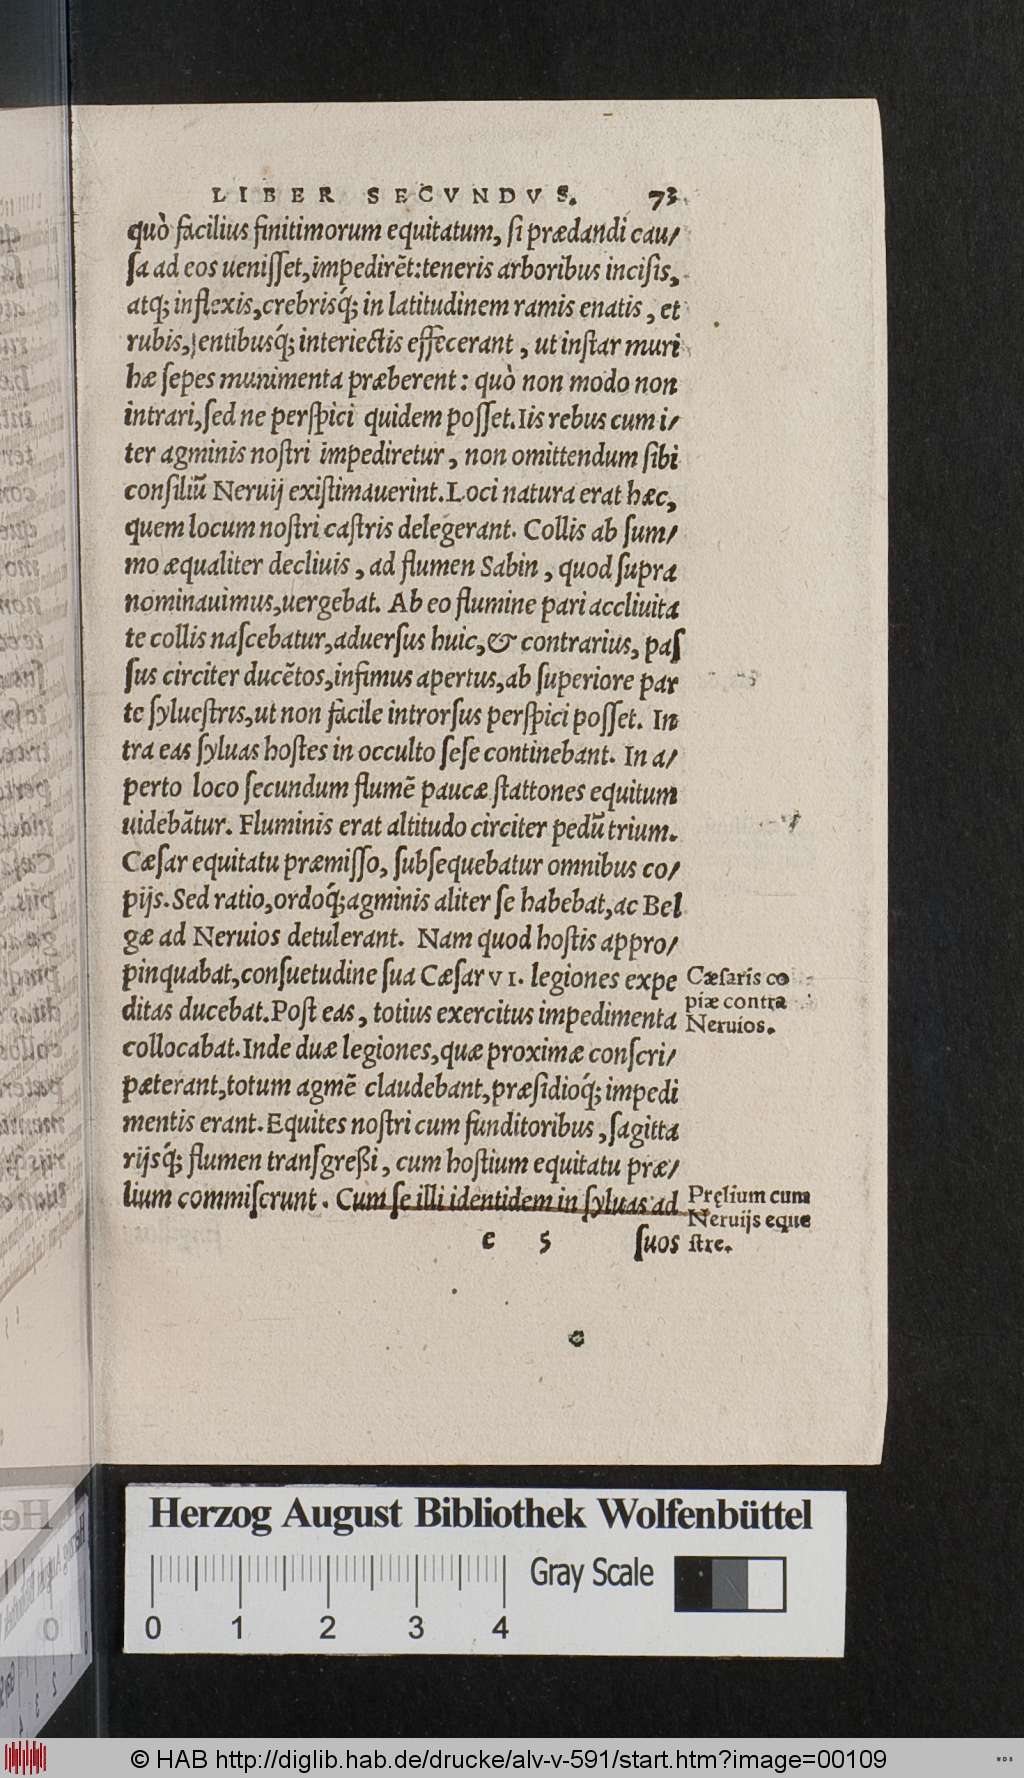 LIBER SECVNDVS. 73
quò facilius finitimorum equitatum, ſi prædandi cau/
ſa ad eos ueniſſet, impedirēt: teneris arboribus inciſis,
atq́; inflexis, crebrisq́; in latitudinem ramis enatis, et
rubis, ſentibusq́; interiectis effecerant, ut inſtar muri
hæ ſepes munimenta præberent: quò non modo non
intrari, ſed ne perſpici quidem poſſet. Iis rebus cum i/
ter agminis noſtri impediretur, non omittendum ſibi
conſiliū Neruij exiſtimauerint. Loci natura erat hæc,
quem locum noſtri caſtris delegerant. Collis ab ſum/
mo æqualiter decliuis, ad flumen Sabin, quod ſupra
nominauimus, uergebat. Ab eo flumine pari accliuita
te collis naſcebatur, aduerſus huic, & contrarius, paſ
ſus circiter ducētos, infimus apertus, ab ſuperiore par
te ſylueſtris, ut non facile introrſus perſpici poſſet. In
tra eas ſyluas hoſtes in occulto ſeſe continebant. In a/
perto loco ſecundum flumē paucæ ſtattones equitum
uidebātur. Fluminis erat altitudo circiter pedū trium.
Cæſar equitatu præmiſſo, ſubſequebatur omnibus co/
pijs. Sed ratio, ordoq́; agminis aliter ſe habebat, ac Bel
gæ ad Neruios detulerant. Nam quod hoſtis appro/
pinquabat, conſuetudine ſua Cæſar VI. legiones expe
ditas ducebat. Poſt eas, totius exercitus impedimenta
collocabat. Inde duæ legiones, quæ proximæ conſcri/
pæterant, totum agmē claudebant, præſidioq́; impedi
mentis erant. Equites noſtri cum funditoribus, ſagitta
rijsq́; flumen tranſgreßi, cum hoſtium equitatu præ/
lium commiſcrunt. Cum ſe illi identidem in ſyluas ad
e 5 ſuos
Cæſaris co
piæ contra
Neruios.
Pręlium cum
Neruijs eque
ſtre.
Herzog August Bibliothek Wolfenbüttel
Gray Scale
0 1 2 3 4
© HAB http://diglib.hab.de/drucke/alv-v-591/start.htm?image=00109